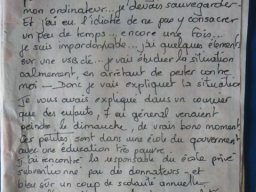 mon ordinateur... je devais sauvegarder
Et j'ai eu l'idiotie de ne pas y consacrer
un peu de temps... encore une fois...
je suis impardonnable... j'ai quelques éléments
sur une USB clé... je vais étudier la situation
calmement, en arrêtant de pester contre
moi... Donc je vais expliquer la situation
Je vous avais expliqué dans un courrier
que des enfants, 7 en général venaient
peindre, le dimanche, de vrais bons moments
Ces petites sont dans une école du gouvernement
avec une éducation très pauvre.
J'ai rencontré la responsable du école privée
subventionnée par des donnateurs et
bleu sur un coup de scolarité annuelle